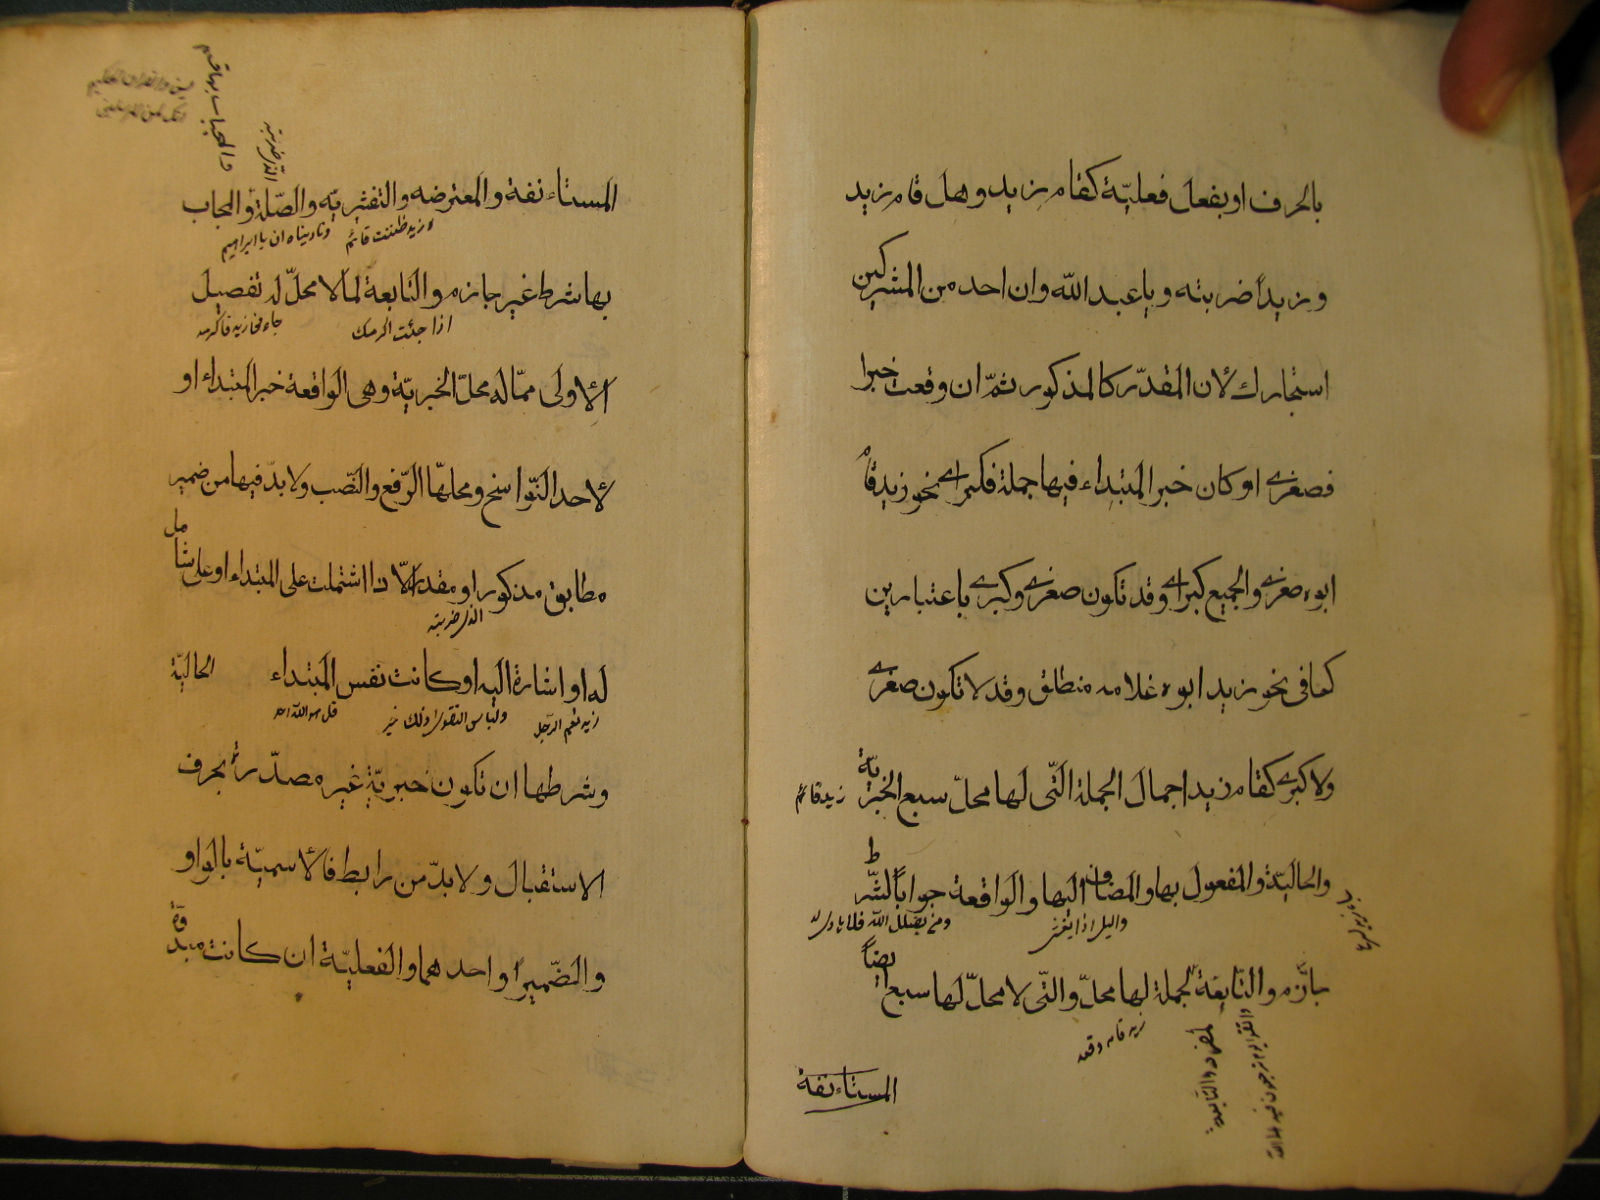 بالحرف او بفعل فعليّة كقام زيد وهل قام زيد
وزيداً ضربته ويا عبد الله وان احد من المشركين
استجارك لأن المقدّر كالمذكور ثمّ ان وقعت خبرا
فصغرى او كان خبر المبتداء فيها جملة فكبراى نحو زيد قام
ابوه صغرى والجميع كبراى وقد تكون صغرى وكبرى باعتبارين
كما فى نحو زيد ابوه غلامه منطلق وقد لا تكون صغرى
ولا كبرى كقام زيد اجمال الجملة التّى لها محلّ سبع الخبريّة
زيد قائم
والحاليّة والمفعول بها والمضاف اليها والواقعة جواباً لشّرط
واليل اذا يغشى
ومن يضلل الله فلا هادى له
جازم والتّابعة لجملة لها محلّ والتّى لا محلّ لها سبع ايضاً
زيد قام وقعد
المستاءنفة
المستاءنفة والمعترضه والتفسّريّه والصّلة والمجاب
زيد ظننت قائم
وناديناه ان يا ابراهيم
بها شرط غير جازم والتّابعة لما لا محلّ له تفصيل
اذا جئت اكرمك
الأولى ممّا له محلّ الخبريّة وهى الواقعة خبر المبتداء او
لأحد النّواسخ ومحلّها الرّفع والنّصب ولا بدّ فيها من ضمير
مطابق مذكور او مقدر الّا اذا اشتملت على المبتداء او على شامل
الذى ضربته
له او اشارة اليه او كانت نفس المبتداء الحاليّة
زيد نعم الرجل
ولباس التقوى ذلك خير
قل هو الله احد
وشرطها ان تكون خبريّة غير مصدّرة بحرف
الاستقبال ولا بدّ من رابط فالأسميّة بالواو
والضّمير او احدهما والفعليّة ان كانت مبدوّة